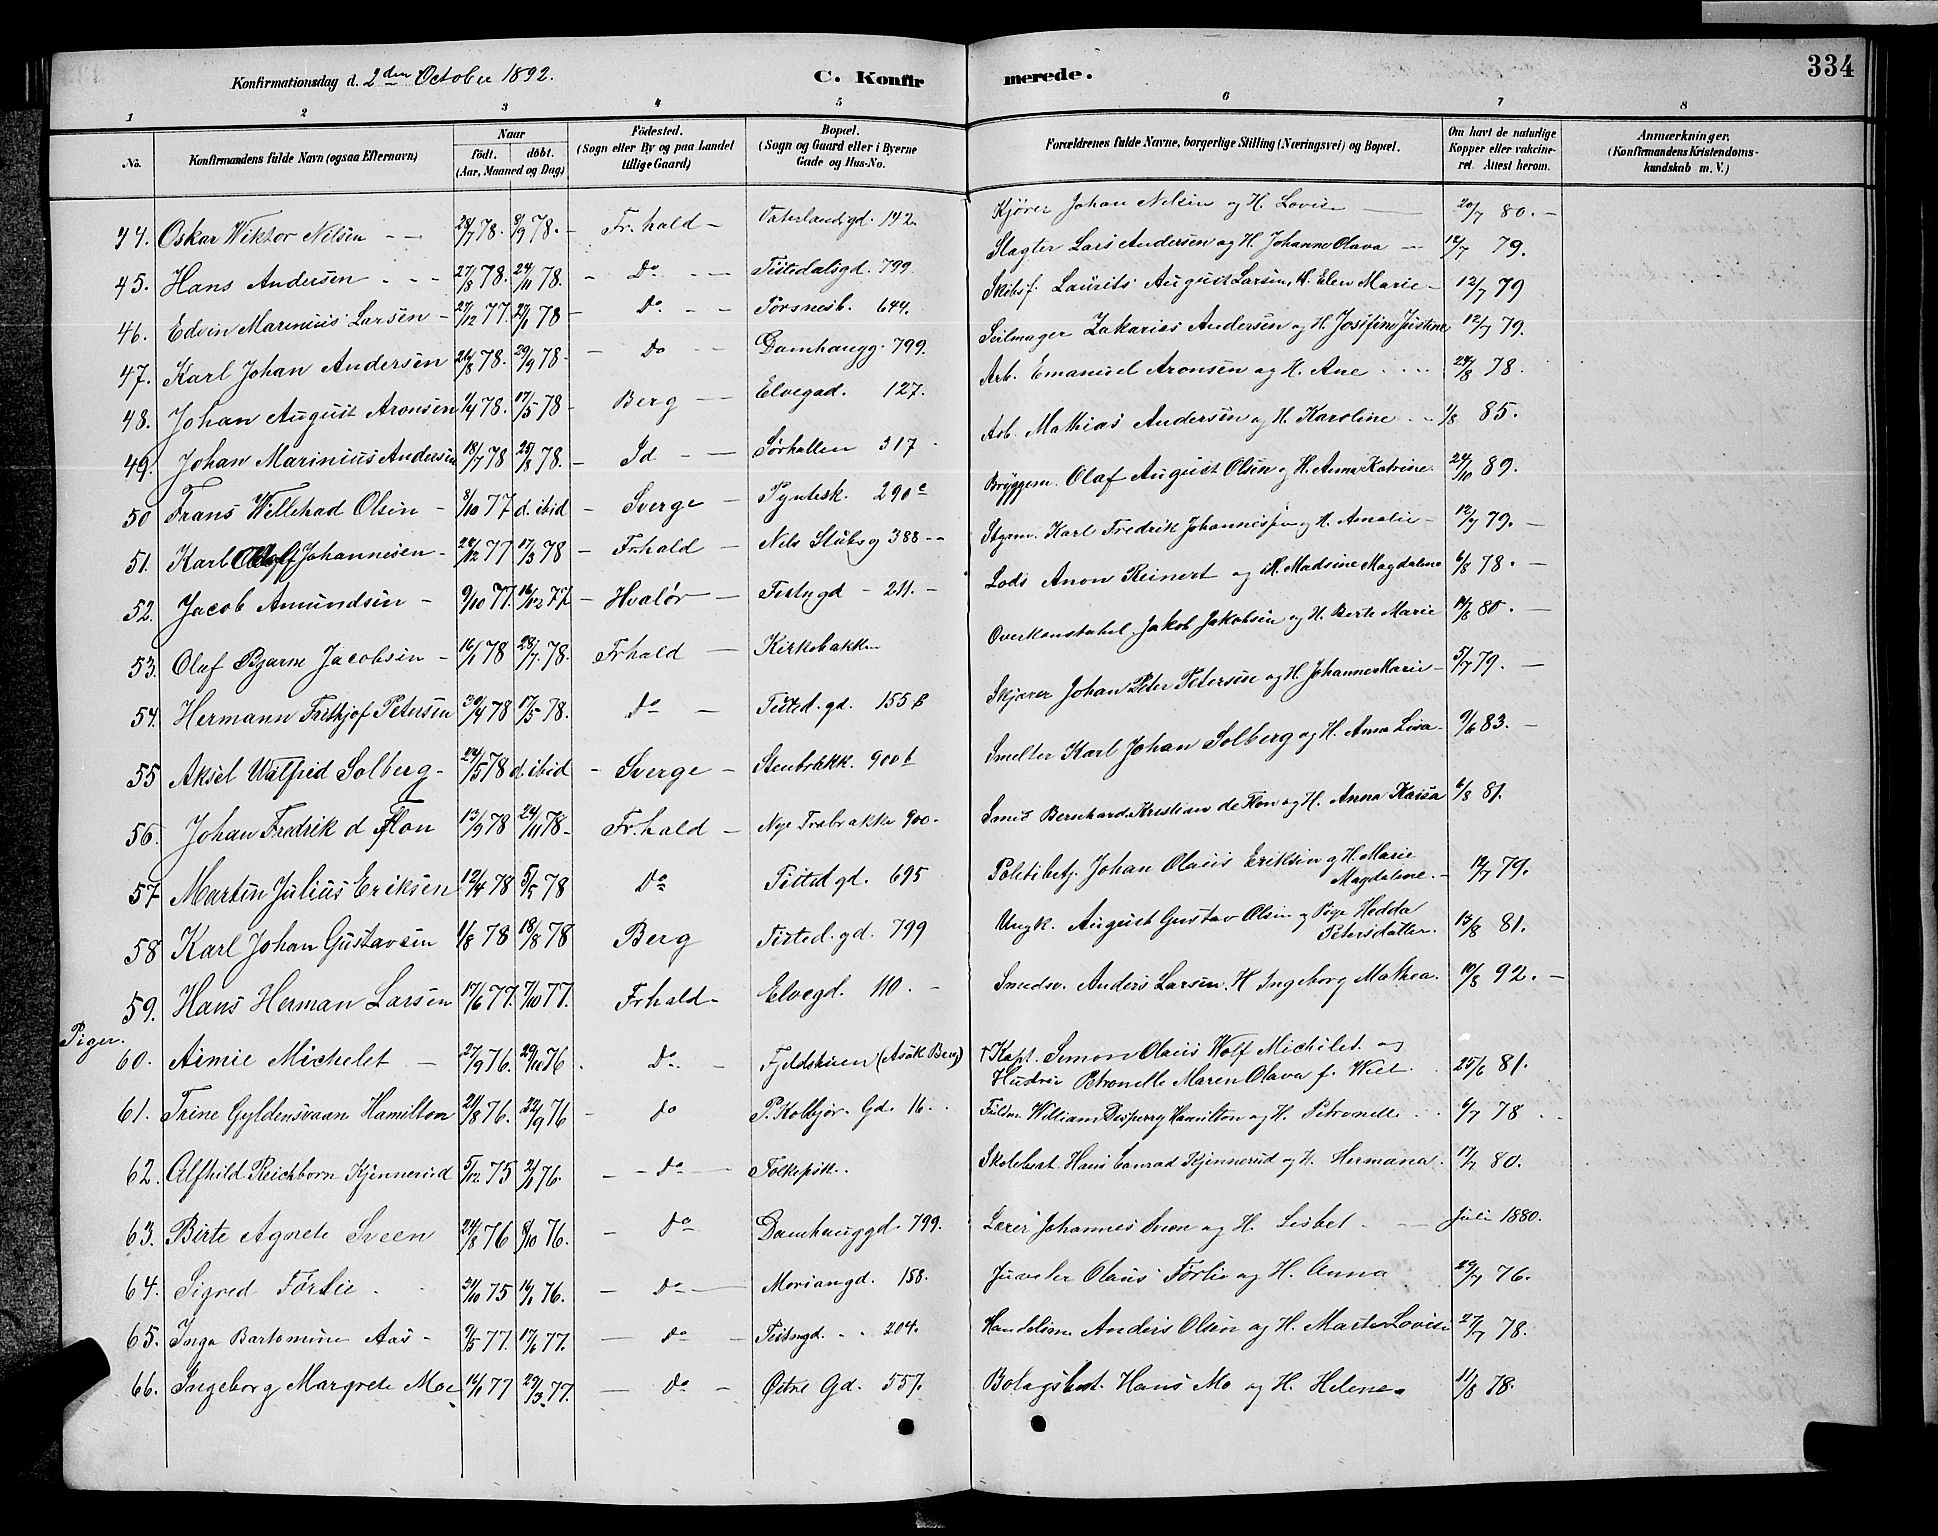 334
Konfirmationsdag d. 2den October 1892. C. Konfirmerede.
1 2 3 4 5 6 7 8
No. Konfirmandens fulde Navn (ogsaa Efternavn) Naar født. døbt. (Aar, Maaned og Dag) Fødested. (Sogn eller By og paa Landet tillige Gaard) Bopæl. (Sogn og Gaard eller i Byerne Gade og Hus-No. Forældrenes fulde Navne, borgerlige Stilling (Næringsvei) og Bopæl. Om havt de naturlige Kopper eller vakcineret. Attest herom. Anmærkninger. (Konfirmandens Kristendomskundskab m. V.)
44. Oskar Wiktor Nilsen 28/7 78. 8/9 78. Fr.hald Vaterlandsgd. 142. Kjører Johan Nelsen og H. Lovise 20/7 80.
45. Hans Andersen 27/8 78. 24/11 78. Do Tistedalsgd. 799. Slagter Lars Andersen og H. Johanne Olava 12/7 79.
46. Edvin Marinius Larsen 27/12 77. 27/1 78 Do Torsnesb. 644. Skibsf. Laurits August Larsen, H. Elen Marie 12/7 79
47. Karl Johan Andersen 26/8 78. 29/9 78. Do Damhaugg. 799. Seilmager Zakarias Andersen og H. Josefine Justine 12/7 79.
48. Johan August Aronsen 9/4 78. 17/5 78 Berg Elvegad. 127. Arb. Emanuel Aronsen og H. Ane 24/8 78.
49. Johan Marinius Andersen 18/7 78 25/8 78. Id Sørhallen 317 Arb. Mathias Andersen og H. Karoline 1/8 85.
50 Frans Willehad Olsen 3/10 77 d. ibid Sverge Pyntesk. 290c Bryggem. Olaf August Olsen og H. Anna Katrine 24/10 89.
51. Karl Johannesen 24/12 77 17/3 78 Frhald Nels Stubsg 388 Karl Fredrik Johannesen og H. Amalie 12/7 79.
52. Jacob Amundsen 9/10 77. 16/12 77 Hvalør Festngd 211. Lods Anon Reinert og H. Madsine Magdalene 6/8 78.
53. Olaf Bjarne Jacobsen 16/1 78 28/7 78. Frhald Kirkebakken Overkonstabel Jakob Jakobsen og H. Berte Marie 14/8 80.
54. Hermann Fritkjof Petersen 30/4 78 17/5 78. Do Tisted. gd. 155 B Skjærer Johan Peter Petersen og H. Johanne Marie 5/7 79.
55 Aksel Walfred Solberg 24/5 78 d. ibid Sverge Stenbrakk. 900b Smelter Karl Johan Solberg og H. Anna Lisa 9/6 83.
56. Johan Fredrik d Flon 13/9 78 24/11 78 Fr.hald Nye Trabrakke 900. Smed Bernhard Kristian de Flon og H. Anna Kaisa 6/8 81.
57 Martin Julius Eriksen 12/4 78 5/5 78 Do Tisted gd. 695 Politibetj. Johan Olaus Eriksen og H. Marie Magdalene 12/7 79.
58 Karl Johan Gustavsen 1/8 78 18/8 78 Berg Tisted. gd. 799 Ungk. August Gustav Olsen og Pige Hedda Petersdatter. 13/8 81.
59. Hans Herman Larsen 17/6 77. 7/10 77. Frhald Elvegd. 110. Smedsv. Anders Larsen. H Ingeborg Mathea. 10/8 92.
Piger.
60. Aimie Michelet 27/9 76. 29/10 76 Do Fjeldskuen (Asak Berg) † Kapt. Simon Olaus Wolf Michelet og
Hustru Petronelle Maren Olava f. Wiel 25/6 81.
61. Trine Gyldensvaan Hamilton 24/8 76. 22/9 76 do P. Kolbjør. Gd. 16. William Hamilton og H. Petronelle 6/7 78
62. Alfhild Reichborn Kjennerud 5/12 75 2/1 76. Do Skolebest. Hans Conrad Kjennerud og H. Hermana. 17/7 80.
63. Birte Agnete Sveen 24/8 76 8/10 76. Do Damhauggd. 799. Lærer Johannes Sveen og H. Lisbet Juli 1880.
64. Sigred Førlie 21/10 75 16/1 76. Do Moriangd. 158. Juveler Olaus Førlie og H. Anna 29/7 76.
65. Inga Bartomine Aas 9/5 77. 17/6 77. Do Festngd. 204. Handelsm. Anders Olsen og H. Marte Lovise 27/7 78.
66. Ingeborg Margrete Moe 12/1 77 29/3 77. Do Østre Gd. 557. Bolagsbest. Hans Mo og H. Helene 11/8 78.